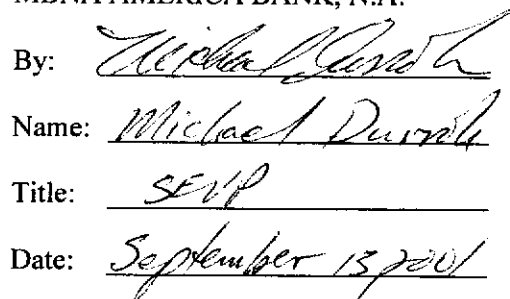 MBNA AMERICA BANK, N.A.
By: Michael
Name: Michael
Title: SEVP
Date: September 13 2001